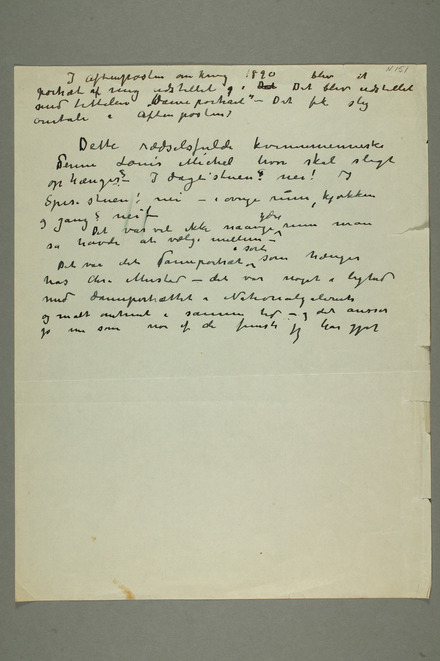 N 151
I Aftenposten omkring 1890 blev et
portræt af mig udstillet og i Det Det blev udstillet
med tittelen „Dameportræt" – Det fik slig
omtale i Aftenposten?
Dette rædselsfulde kvindemenneske
Denne Louis Michel hvor skal sligt
ophænges? – I dagligstuen? nei! I
Spisestuen? nei – i øvrige rum, kjøkken
og gang? nei!
Det var vel ikke mange ydre rum man
så havde at vælge mellem –
Det var det Dameportræt i sort som hænger
hos Chr Mustad – det var noget i lighed
med dameportrættet i Nationalgaleriet
og malt omtrent i samme tid – og det ansees
jo nu som noe af de fineste jeg har gjort